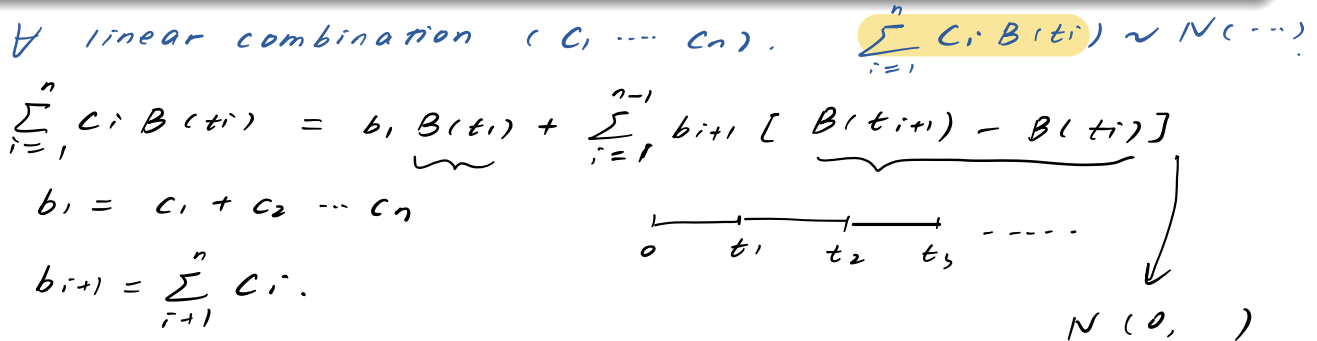 ∀ linear combination (C₁ ···· Cₙ). ∑ᵢ₌₁ⁿ Cᵢ B(tᵢ) ~ N(···).
∑ᵢ₌₁ⁿ Cᵢ B(tᵢ) = b₁ B(t₁) + ∑ᵢ₌₁ⁿ⁻¹ bᵢ₊₁ [B(tᵢ₊₁) − B(tᵢ)]
b₁ = C₁ + C₂ ··· Cₙ
0 t₁ t₂ t₃ ·····
bᵢ₊₁ = ∑ᵢ₊₁ⁿ Cᵢ.
N(0, )